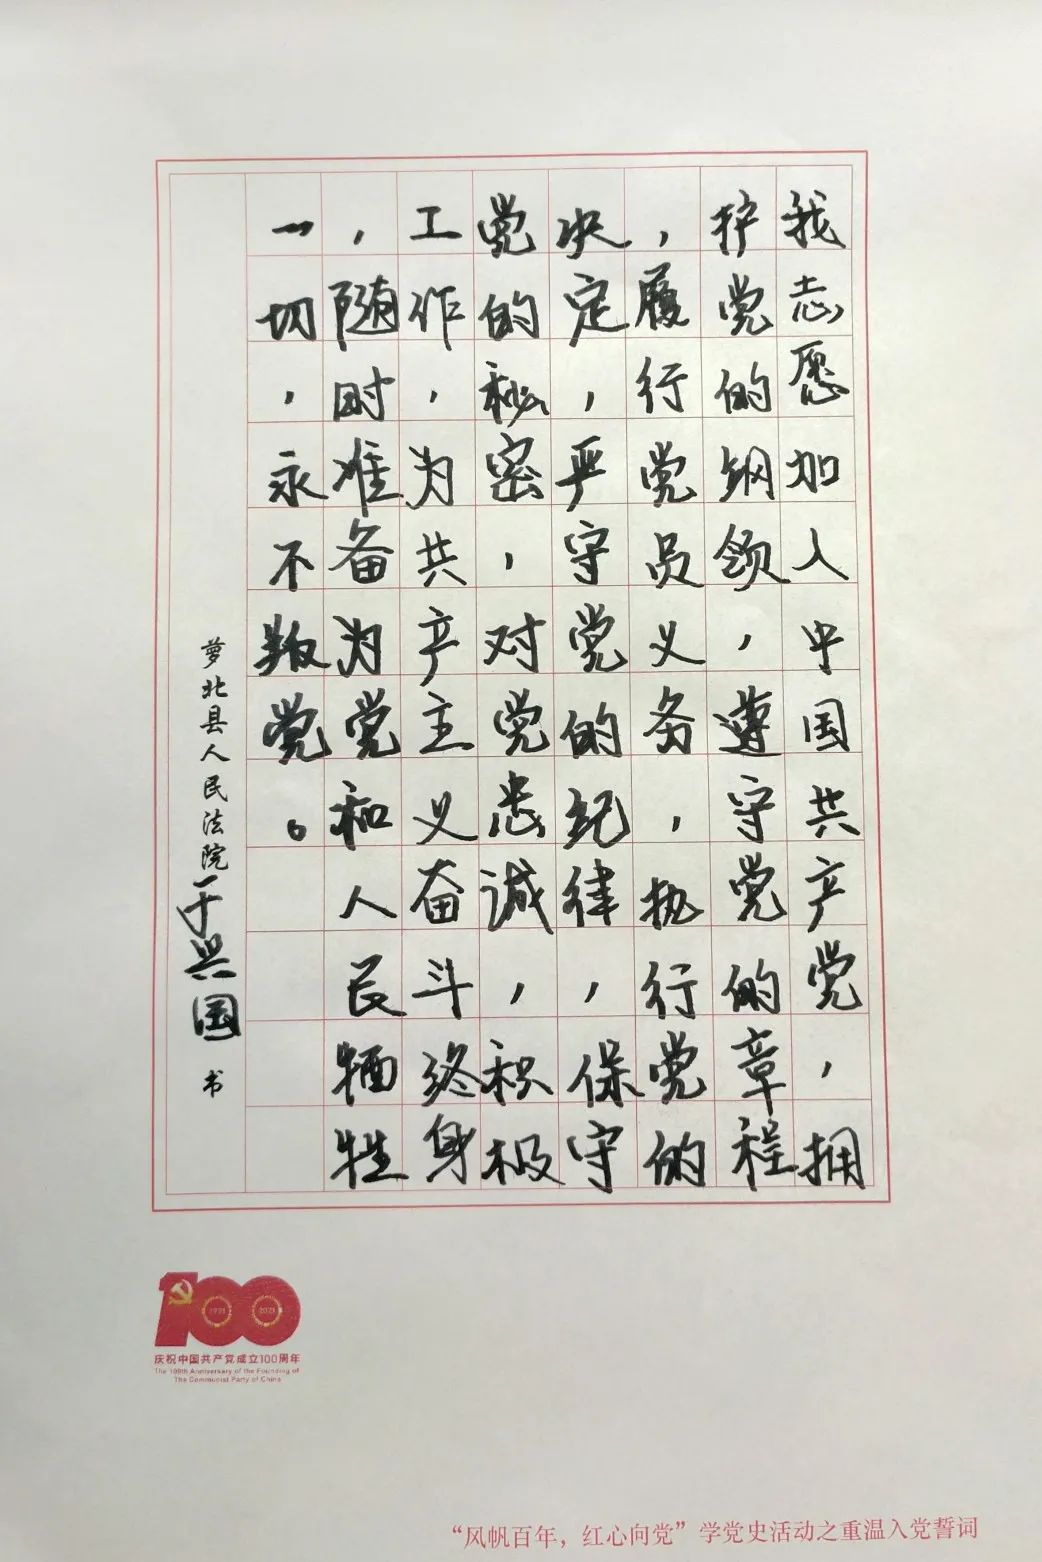 我志愿加入中国共产党，拥
护党的纲领，遵守党的章程
，履行党员义务，执行党的
决定，严守党的纪律，保守
党的秘密，对党忠诚，积极
工作，为共产主义奋斗终身
，随时准备为党和人民牺牲
一切，永不叛党。
萝北县人民法院于兴国书
100
1921 2021
庆祝中国共产党成立100周年
The 100th Anniversary of the Founding of
The Communist Party of China
“风帆百年，红心向党”学党史活动之重温入党誓词